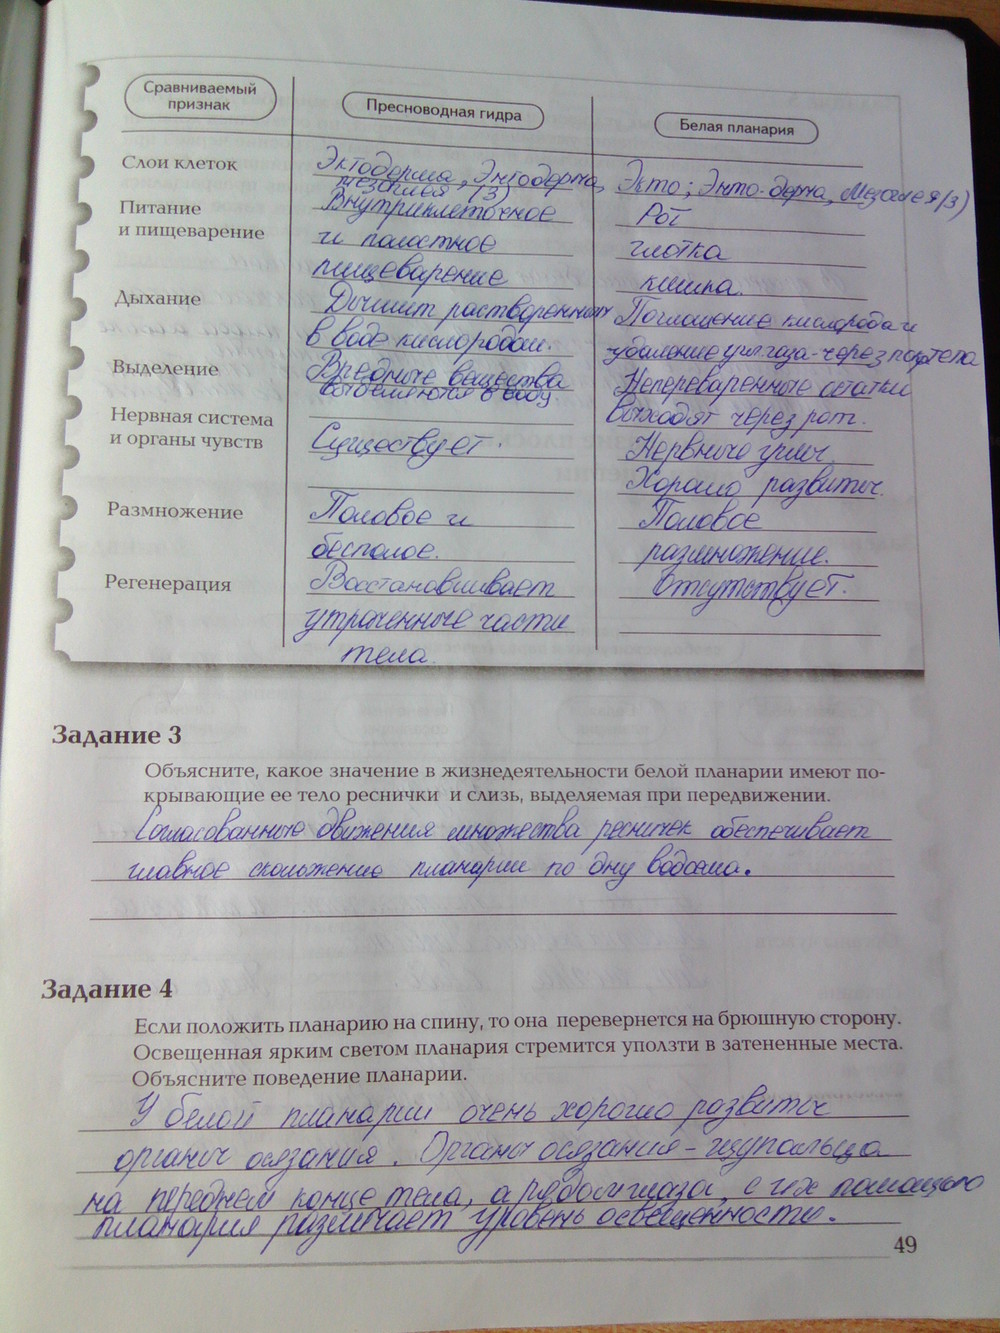 Сравниваемый признак
Пресноводная гидра
Белая планария
Слои клеток
Эктодерма, Энтодерма,
мезоглея (3)
Экто; Энто-дерма, Мезоглея (3)
Питание
и пищеварение
Внутриклеточное
и полостное
пищеварение
Рот
глотка
кишка.
Дыхание
Дышит растворенным
в воде кислородом.
Поглощение кислорода и
удаление угл.газа-через пов. тела
Выделение
Вредные вещества
выделяются в воду.
Непереваренные остатки
выходят через рот.
Нервная система
и органы чувств
Существует.
Нервных узлы.
Хорошо развиты.
Размножение
Половое и
бесполое.
Половое
размножение.
Регенерация
Восстанавливает
утраченные части
тела.
Отсутствует.
Задание 3
Объясните, какое значение в жизнедеятельности белой планарии имеют по-
крывающие ее тело реснички и слизь, выделяемая при передвижении.
Согласованные движения множества ресничек обеспечивает
главное скольжение планарии по дну водоема.
Задание 4
Если положить планарию на спину, то она перевернется на брюшную сторону.
Освещенная ярким светом планария стремится уползти в затененные места.
Объясните поведение планарии.
У белой планарии очень хорошо развиты
органы осязания. Органы осязания-щупальца
на переднем конце тела, а рядом глаза, с их помощью
планария различает уровень освещенности.
49